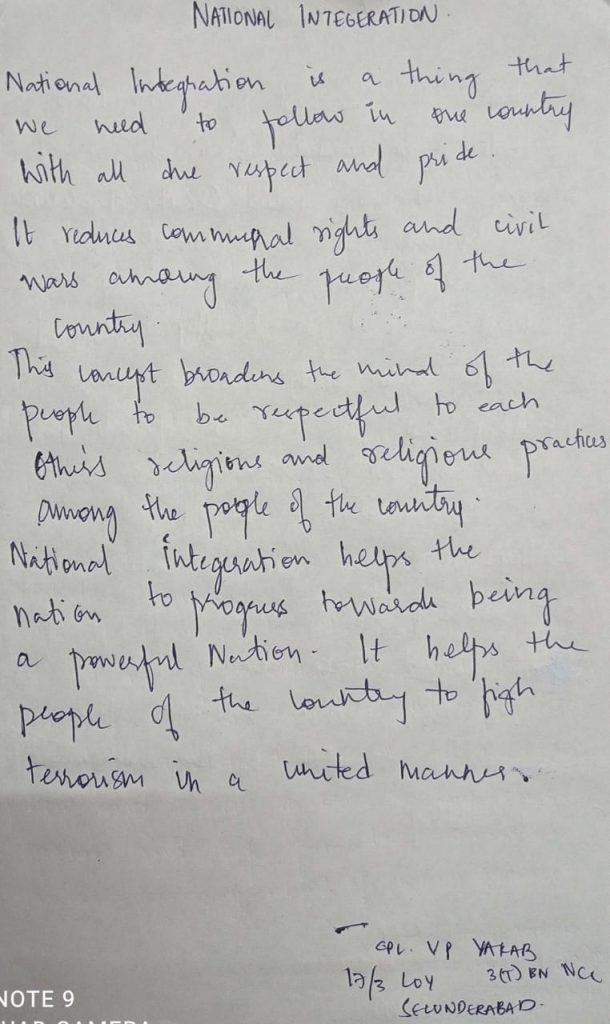 NATIONAL INTEGERATION.
National Integration is a thing that
we need to follow in our country
with all due respect and pride.
It reduces communal rights and civil
wars amoung the people of the
country.
This concept broadens the mind of the
people to be respectful to each
others religions and religious practices
among the people of the country.
National integeration helps the
nation to progress towards being
a powerful Nation. It helps the
people of the country to figh
terrorism in a united manner.
CPL. VP
17/3 COY 3(T) BN NCC
SECUNDERABAD.
NOTE 9